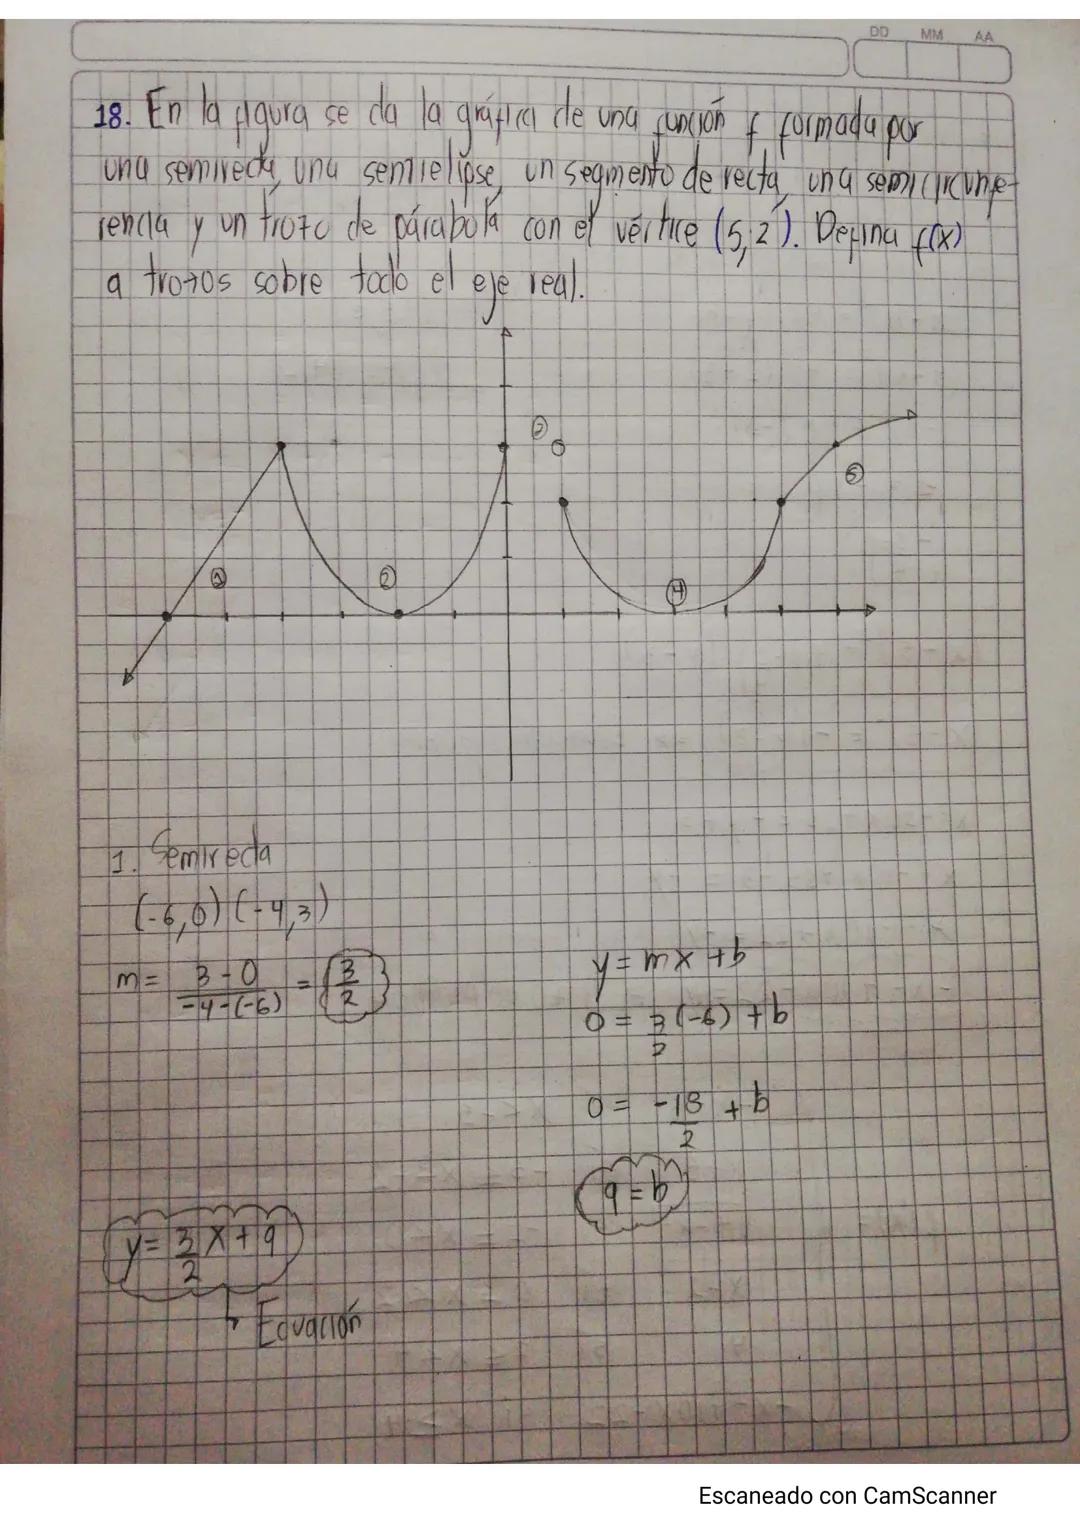 DD MM AA
18. En la figura se da la gráfica de una función f formada por
una semirecta, una semielipse, un segmento de recta, una semicircunfe-
rencia y un trozo de párabola con el vértice (5,2). Defina f(x)
a trozos sobre todo el eje real.
②
⑤
②
④
1. Semirecta
(-6,0) (-4,3)
m = 3-0 / -4-(-6) = 3/2
y = mx + b
0 = 3/2 (-6) + b
0 = -18/2 + b
9 = b
y = 3/2 x + 9
Ecuación
Escaneado con CamScanner